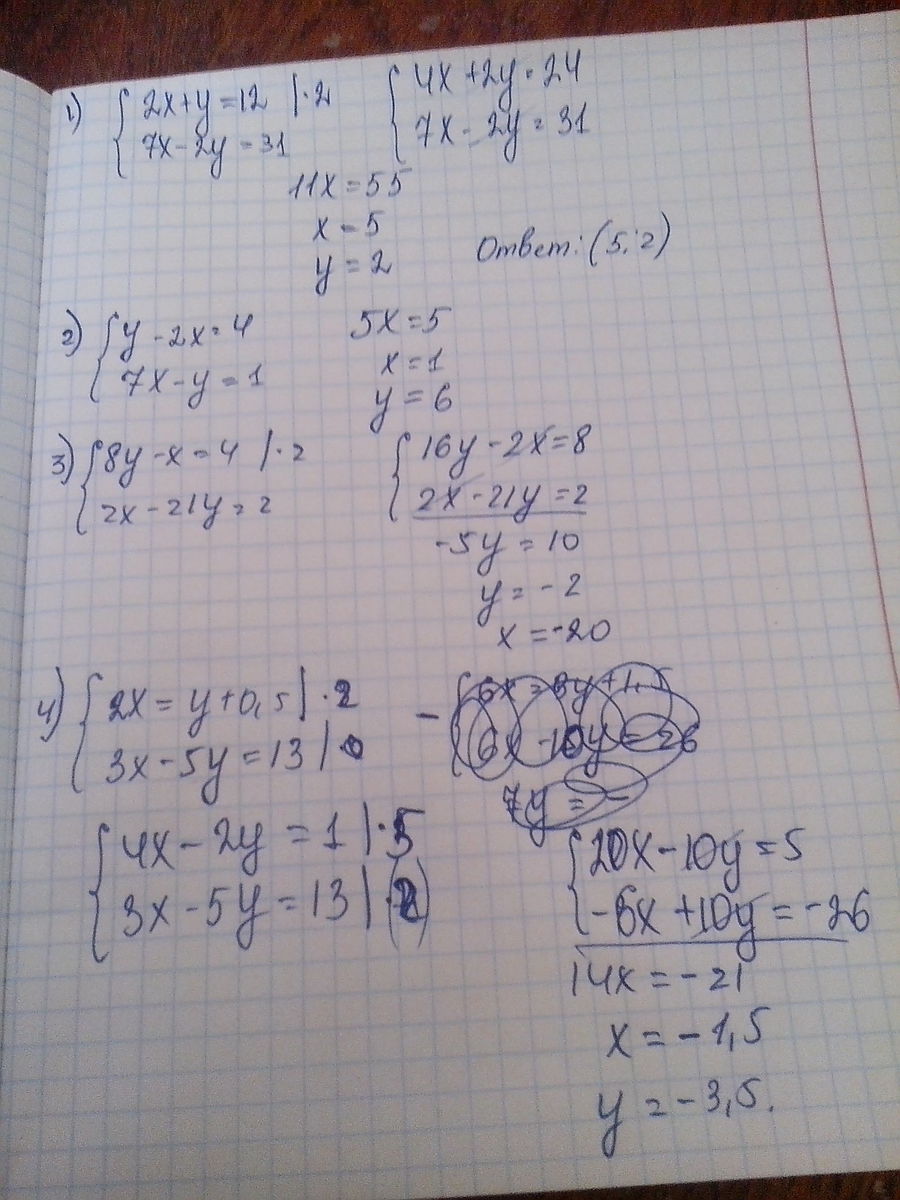 1) { 2x+y=12 |·2
7x-2y=31
{ 4x+2y=24
7x-2y=31
11x=55
x=5
y=2
Ответ: (5; 2)
2) { y-2x=4
7x-y=1
5x=5
x=1
y=6
3) { 8y-x=4 |·2
2x-21y=2
{ 16y-2x=8
2x-21y=2
-5y=10
y=-2
x=-20
4) { 2x=y+0,5 |·2
3x-5y=13 |
- { 6x=3y+1,5
6x-10y=26
7y=-
{ 4x-2y=1 |·5
3x-5y=13 |(·2)
{ 20x-10y=5
-6x+10y=-26
14x=-21
x=-1,5
y=-3,5.